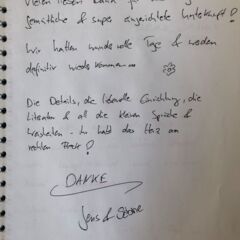 Vielen lieben Dank für die
gemütliche & super eingerichtete Unterkunft!
Wir hatten wundervolle Tage & werden
definitiv wiederkommen...
Die Details, die liebevolle Einrichtung, die
Literatur & all die kleinen Sprüche &
Weisheiten - Ihr habt das Herz am
rechten Fleck!
DANKE
Jens & Sabine